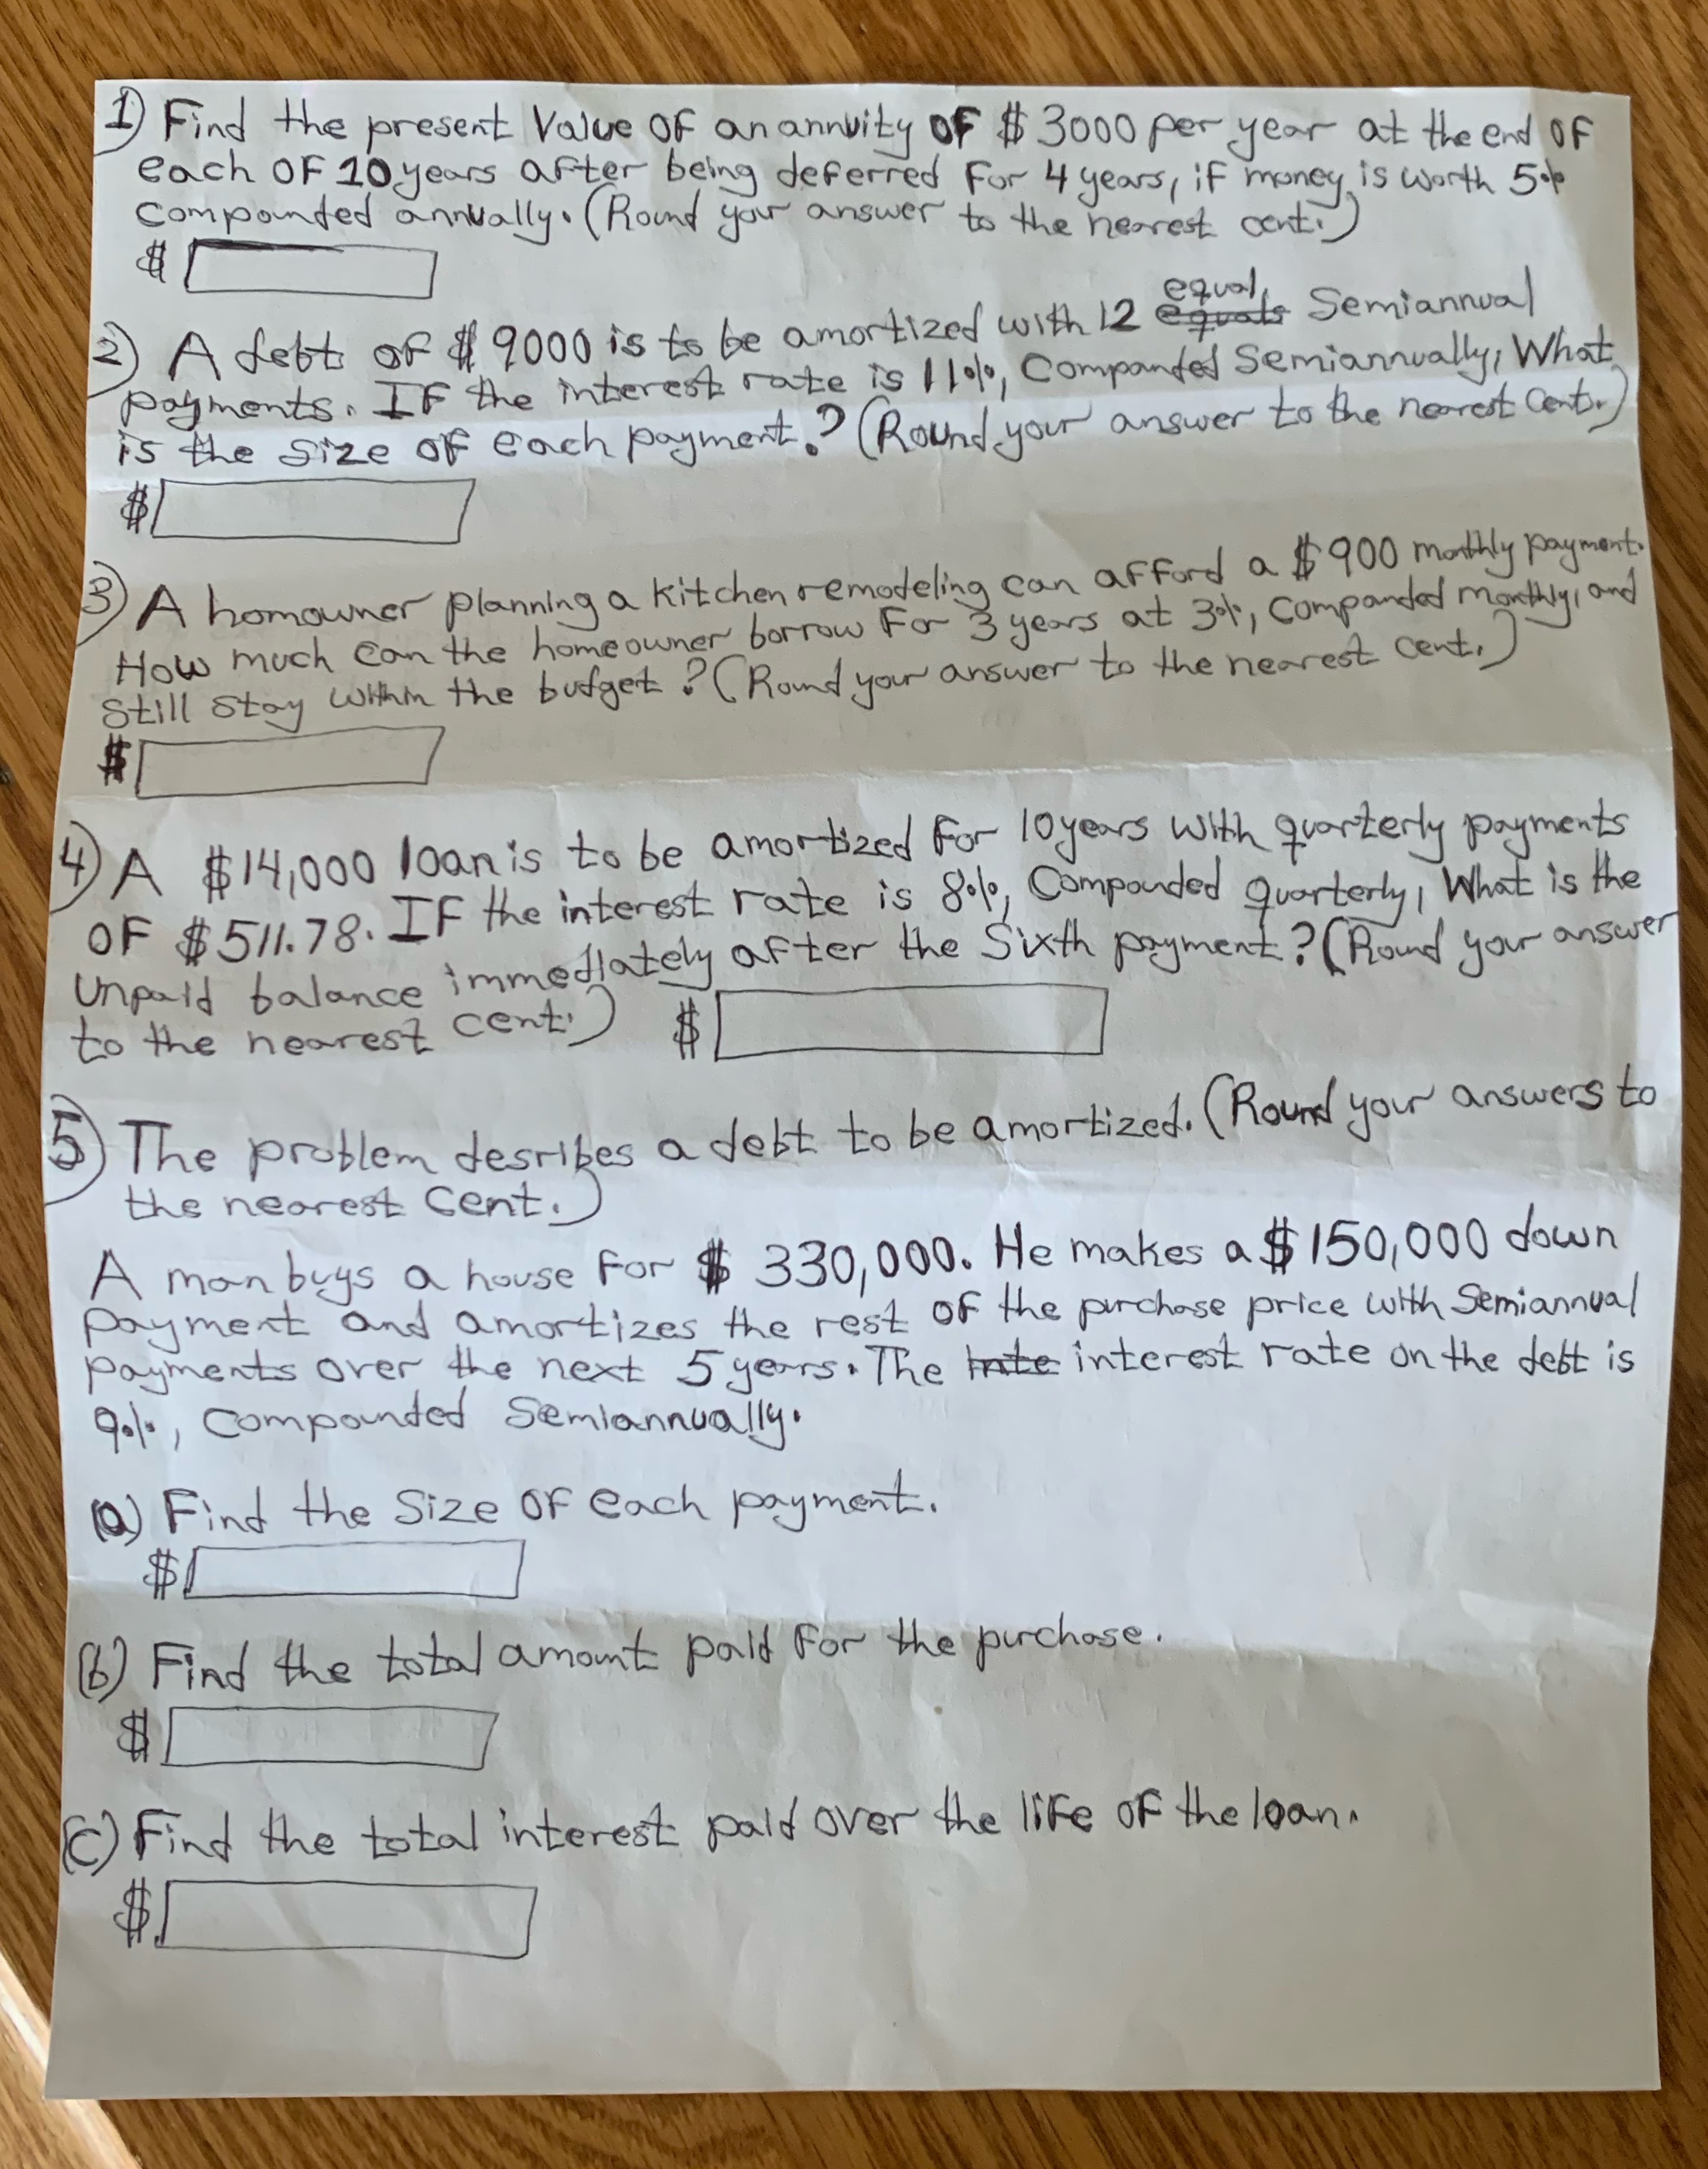 1) Find the present Value OF an annuity OF $ 3000 per year at the end OF
each OF 10 years after being deferred For 4 years, iF money is worth 5%
compounded annually. (Round your answer to the nearest cent.)
$
2) A debt of $ 9000 is to be amortized with 12 equal equals Semiannual
payments. IF the interest rate is 11%, Compounded Semiannually, What
is the size of each payment.? (Round your answer to the nearest cent.)
$
3) A homowner planning a kitchen remodeling can afford a $900 monthly payment.
How much can the homeowner borrow For 3 years at 3%, Compounded monthly, and
Still Stay within the budget? (Round your answer to the nearest cent.)
$
4) A $14,000 loan is to be amortized For 10 years with quarterly payments
OF $511.78. IF the interest rate is 8%, Compounded quarterly, What is the
Unpaid balance immediately after the Sixth payment? (Round your answer
to the nearest cent.) $
5) The problem desribes a debt to be amortized. (Round your answers to
the nearest Cent.)
A man buys a house For $ 330,000. He makes a $150,000 down
payment and amortizes the rest of the purchase price with Semiannual
payments over the next 5 years. The interest rate on the debt is
9%, Compounded Semiannually.
(a) Find the Size OF each payment.
$
(b) Find the total amount paid For the purchase.
$
(c) Find the total interest paid over the life OF the loan.
$